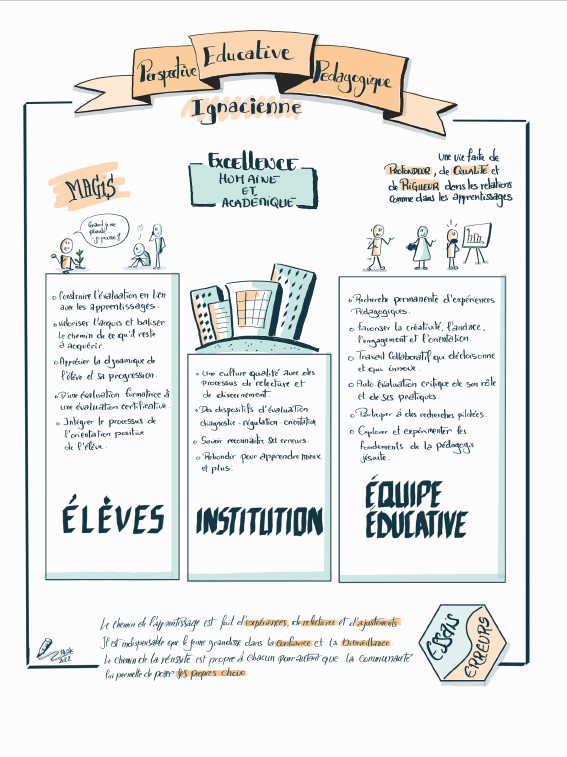 Perspective Educative Pédagogique
Ignacienne
MAGIS
EXCELLENCE
HUMAINE
ET
ACADÉMIQUE
Une vie faite de
PROFONDEUR, de QUALITÉ et
de RIGUEUR dans les relations
comme dans les apprentissages
Quand je me
plante
je pousse !!
o Construire l'évaluation en lien
avec les apprentissages.
o Valoriser l'acquis et baliser
le chemin de ce qu'il reste
à acquérir.
o Apprécier la dynamique de
l'élève et sa progression.
o D'une évaluation formatrice à
une évaluation certificative.
o Intégrer le processus de
l'orientation positive
de l'élève.
ÉLÈVES
o Une culture qualité avec des
processus de relecture et
de discernement.
o Des dispositifs d'évaluation
diagnostic - régulation - orientation
o Savoir reconnaître ses erreurs.
o Rebondir pour apprendre mieux
et plus.
INSTITUTION
o Recherche permanente d'expériences
Pédagogiques.
o Favoriser la créativité, l'audace,
l'engagement et l'orientation.
o Travail Collaboratif qui décloisonne
et qui innove.
o Auto évaluation critique de son rôle
et de ses pratiques.
o Participer à des recherches pilotées.
o Explorer et expérimenter les
fondements de la pédagogie
jésuite.
ÉQUIPE
ÉDUCATIVE
Le chemin de l'apprentissage est fait d'expériences, de relectures et d'ajustements
Il est indispensable que le jeune grandisse dans la confiance et la bienveillance
Le chemin de la réussite est propre à chacun pour autant que la communauté
lui permette de poser ses propres choix
ESSAIS
ERREURS
2022